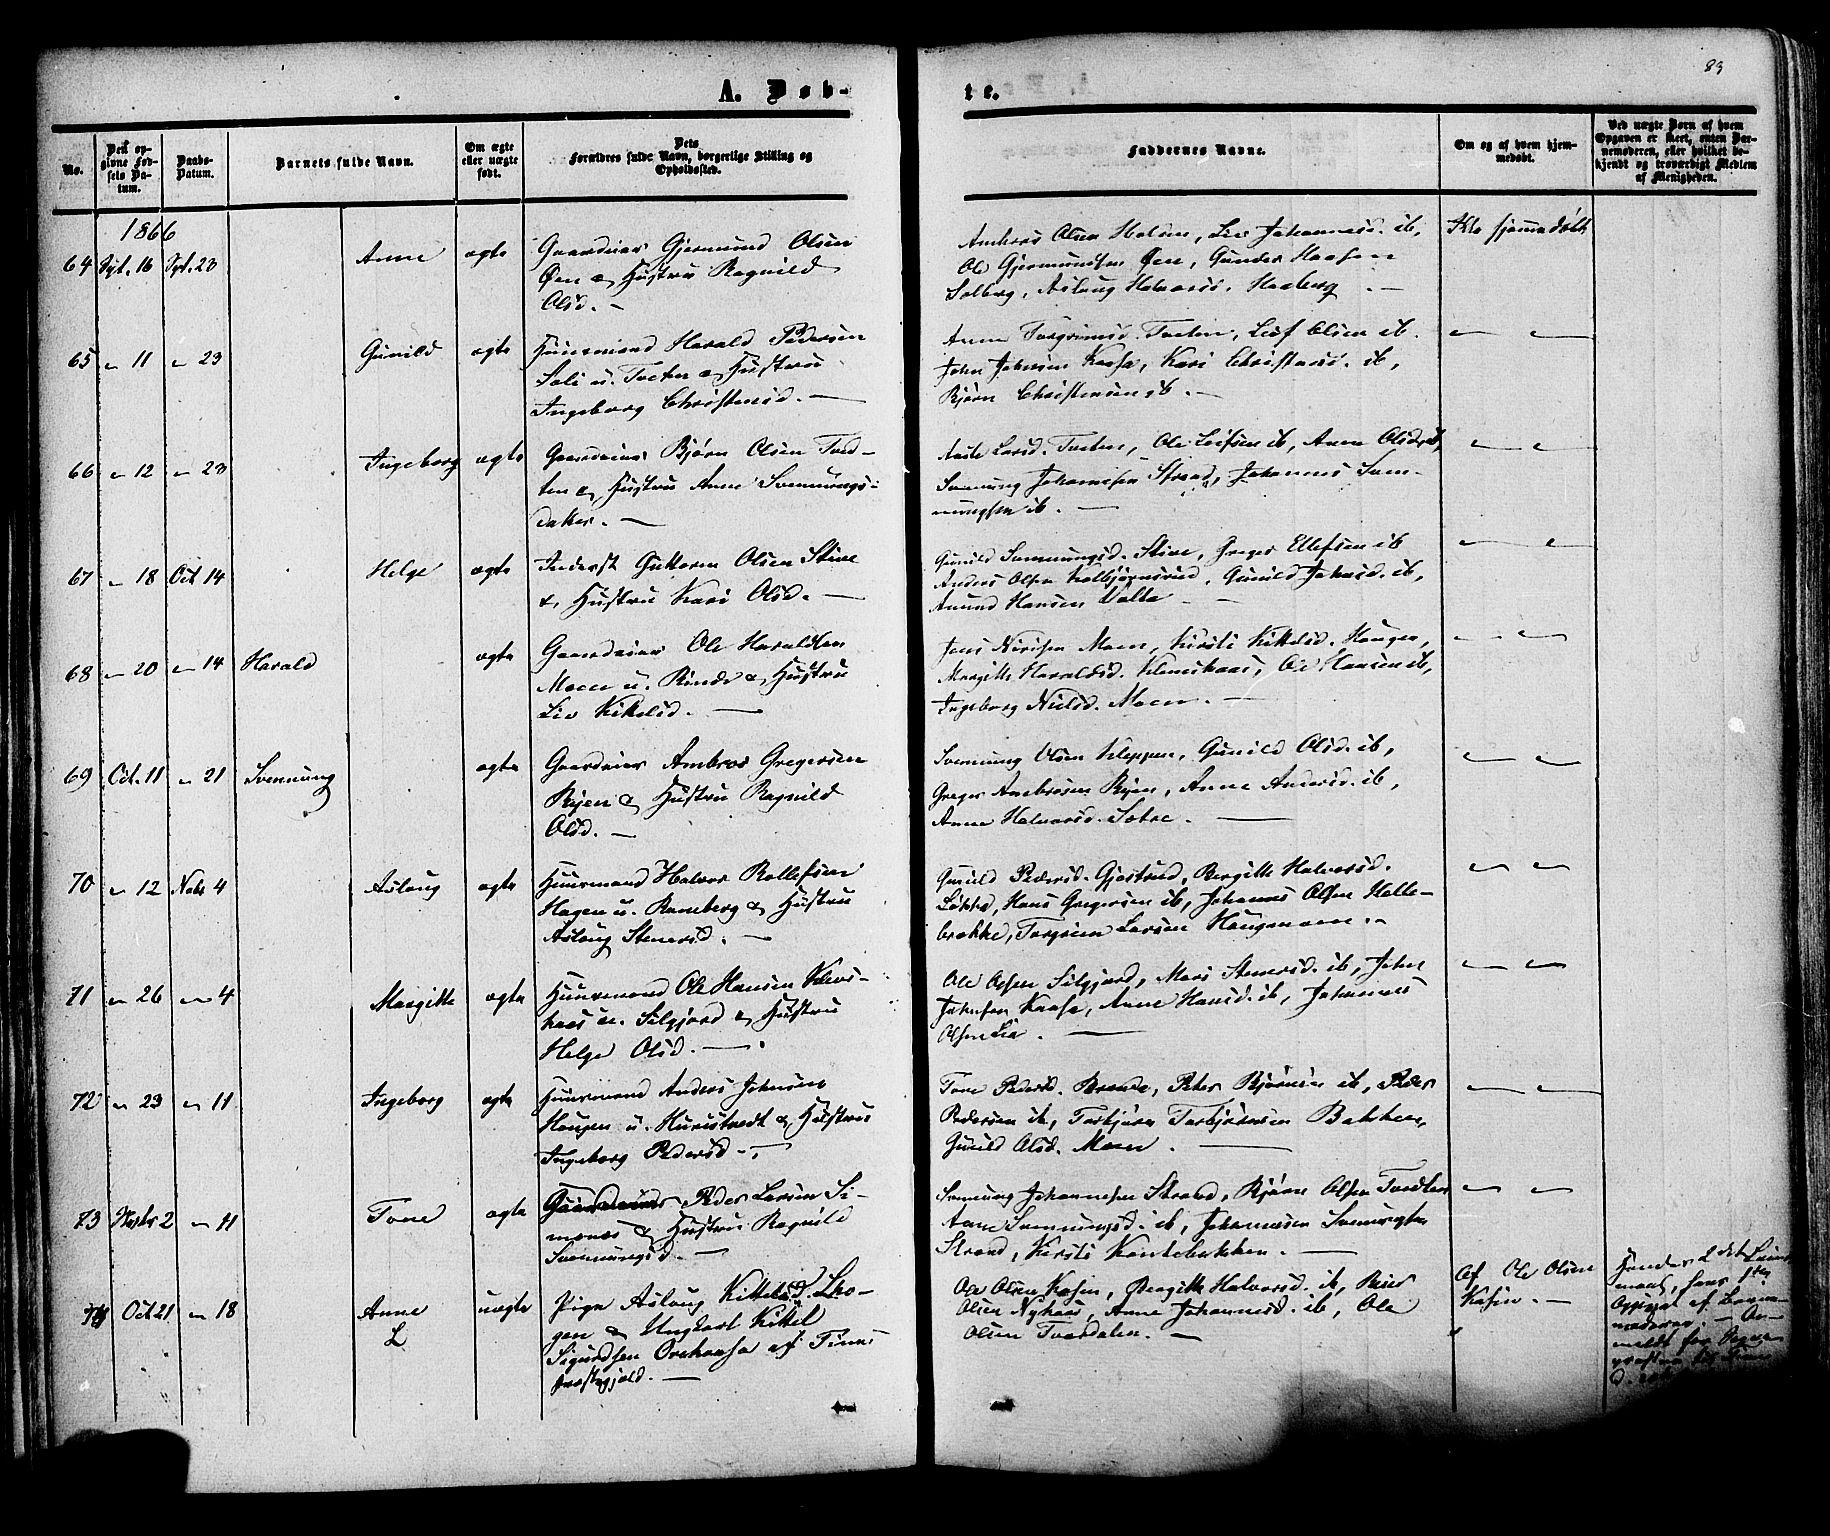 83
A. Døb-
te.
No.
Den op-
givne Fød-
sels Da-
tum.
Daabs-
Datum.
Barnets fulde Navn.
Om ægte
eller uægte
født.
Dets
Forældres fulde Navn, borgerlige Stilling og
Opholdssted.
Faddernes Navne.
Om og af hvem hjem-
medøbt.
Ved uægte Børn af hvem
Opgaven er skeet, enten Bar-
nemoderen, eller hvilket be-
kjendt og troværdigt Medlem
af Menigheden.
1866
64 Spt. 16 Spt. 23 Anne ægte
Gaardeier Gjermund Olsen
Øen & Hustru Ragnild
Olsd. —
Ambros Olsen Halden, Liv Johannesd. ib,
Ole Gjermundsen Øen, Gunder
Solberg, Aslaug Halvorsd.
hjemmedøbt
65 " 11 " 23 Gunild ægte
Huusmand Harald Pedersen
Soli u. Tveten & Hustru
Ingeborg Christensd. —
Anne Torgrimsd. Tveten, Leif Olsen ib.
John Johnsen Kaasa, Kari Christensd. ib,
Bjørn Christensen ib. —
66 " 12 " 23 Ingeborg ægte
Gaardeier Bjørn Olsen Tved-
ten & Hustru Anne Svennungs-
datter. —
Aaste Larsd. Tveten, Ole Leifsen ib, Anne Olsd. ib,
Svennung Johannesen Strand, Johannes Sven-
nungsen ib. —
67 " 18 Oct 14 Helge ægte
Inderst Guttorm Olsen Stive
& Hustru Kari Olsd. —
Gunild Svennungsd. Stive, Greger Ellefsen ib
Anders Olsen Kolbjørnsrud, Gunild Johnsd. ib,
Amund Hansen —
68 " 20 " 14 Harald ægte
Gaardeier Ole Haraldsen
Moen u. Rinde & Hustru
Liv Kittelsd. —
Jens Nirisen Moen, Kirsti Kittelsd. Haugen,
Margitte Haraldsd. Klevskaas, Ole Hansen ib,
Ingeborg Nielsd. Moen. —
69 Oct. 11 " 21 Svennung ægte
Gaardeier Ambros Gregersen
Ryen & Hustru Ragnild
Olsd. —
Svennung Olsen Kleppen, Gunild Olsd. ib,
Greger Ambrosen Ryen, Anne Andersd. ib,
Anne Halvorsd. Sætre. —
70 " 12 Novbr 4 Aslaug ægte
Huusmand Halvor Rollefsen
Hagen u. Raneberg & Hustru
Aslaug Stenersd. —
Gunild Pedersd. Gjestrud, Bergitte Halvorsd.
Løkka, Hans Gregersen ib, Johannes Olsen Holte-
brække, Torgrim Larsen Haugmoen. —
71 " 26 " 4 Margitte ægte
Huusmand Ole Hansen Klevs-
kaas u. Silgjord & Hustru
Helge Olsd. —
Ole Olsen Silgjord, Mari Stenersd. ib, John
Johnsen Kaasa, Anne Hansd. ib, Johannes
Olsen Lia. —
72 " 23 " 11 Ingeborg ægte
Huusmand Anders Johnsen
Haugen u. & Hustru
Ingeborg Pedersd —
Tone Pedersd. Peter Bjørnsen ib, Peder
Pedersen ib, Torbjørn Torbjørnsen Bakken,
Gunild Olsd. Moen. —
73 Novbr 2 " 11 Tone ægte
Peder Larsen Si-
monæs & Hustru Ragnild
Svennungsd. —
Svennung Johannesen Strand, Bjørn Olsen Tvedten
Anne Svennungsd. ib, Johannesen Svennungsen
Strand, Kirsti Kantebakken. —
74 Oct 21 " 18 Anne
L uægte
Pige Aslaug Kittelsd. Sko-
gen & Ungkarl Kittel
Sigurdsen Orekaasa af Tinns
Præstegjeld. —
Ole Olsen Kasin, Bergitte Halvorsd. ib, Peder
Olsen Nykaas, Anne Johannesd. ib, Ole
Olsen Tverdalen. —
Af Ole Olsen
Kasin. —
Hendes 2det Leier-
maal, hans 1ste
Opgivet af Barne-
moderen. — An-
meldt for